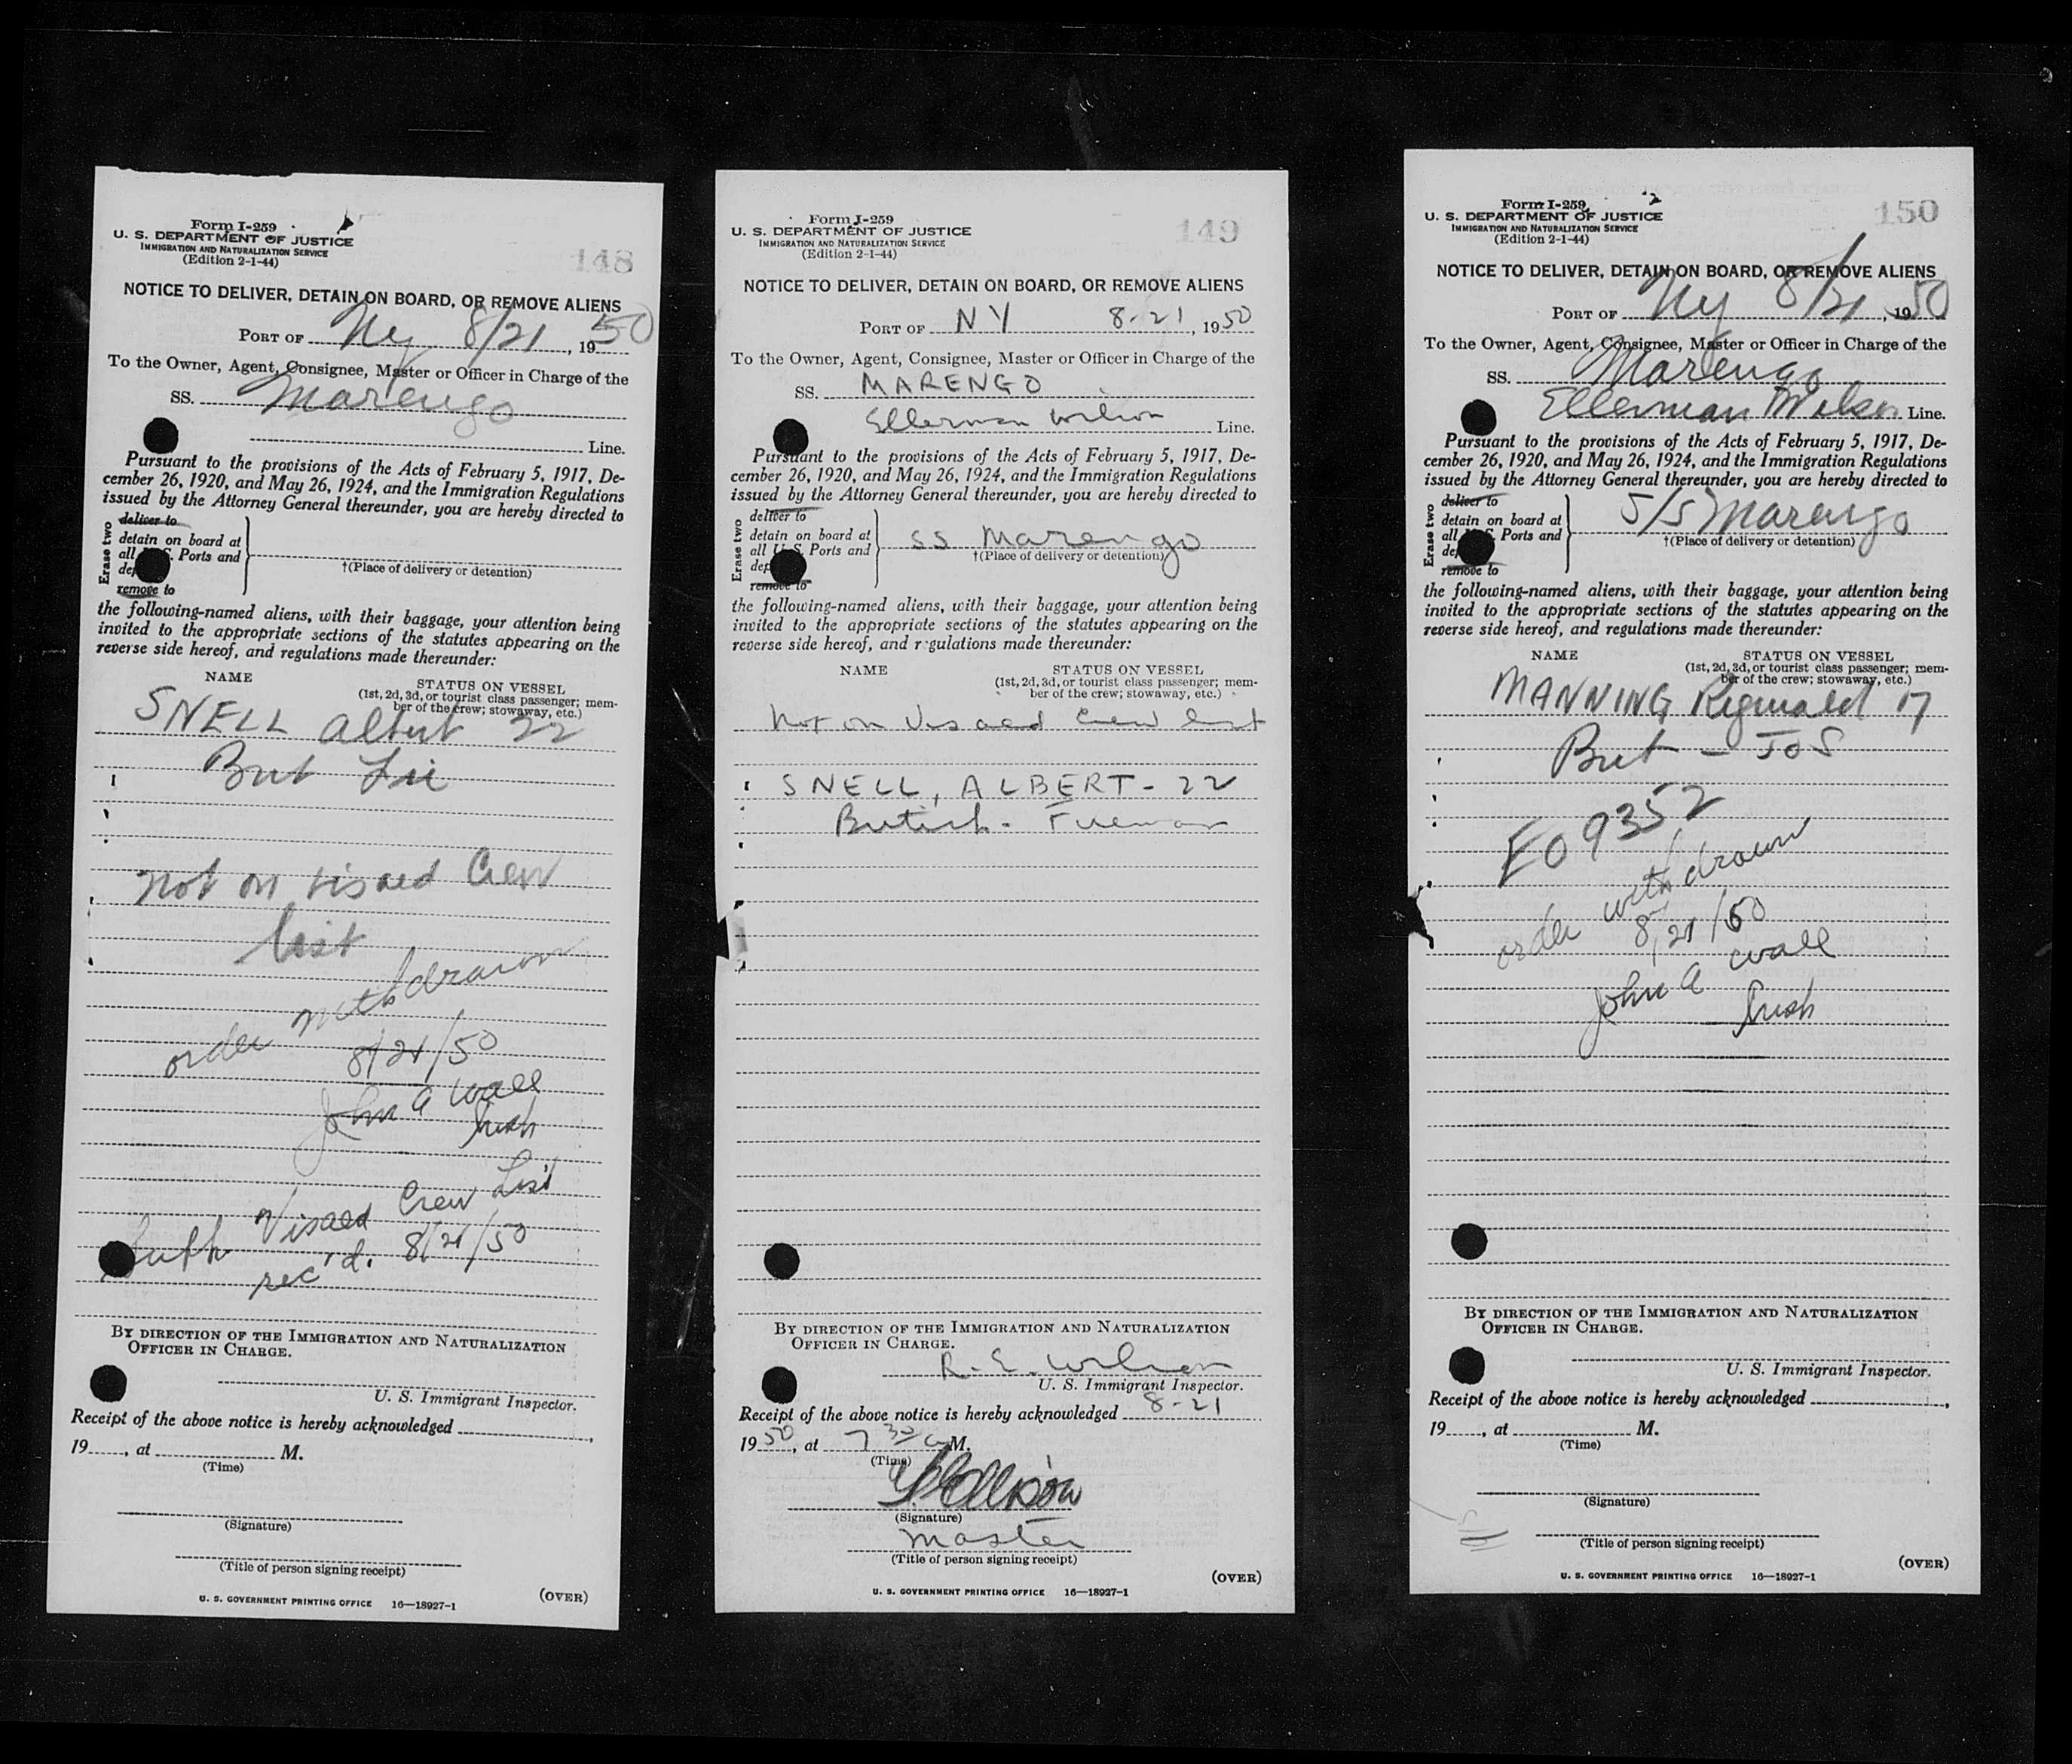 Form I-259
U. S. DEPARTMENT OF JUSTICE
IMMIGRATION AND NATURALIZATION SERVICE
(Edition 2-1-44)
148
NOTICE TO DELIVER, DETAIN ON BOARD, OR REMOVE ALIENS
PORT OF Ny 8/21, 1950
To the Owner, Agent, Consignee, Master or Officer in Charge of the
SS. Marengo
Line.
Pursuant to the provisions of the Acts of February 5, 1917, De-
cember 26, 1920, and May 26, 1924, and the Immigration Regulations
issued by the Attorney General thereunder, you are hereby directed to
Erase two
deliver to
detain on board at
all U.S. Ports and
†(Place of delivery or detention)
remove to
the following-named aliens, with their baggage, your attention being
invited to the appropriate sections of the statutes appearing on the
reverse side hereof, and regulations made thereunder:
NAME
STATUS ON VESSEL
(1st, 2d, 3d, or tourist class passenger; mem-
ber of the crew; stowaway, etc.)
SNELL Albert 22
Brit
Not on visaed Crew
list
order withdrawn
8/21/50
John A Wall
Insp
Visaed Crew List
rec'd. 8/21/50
BY DIRECTION OF THE IMMIGRATION AND NATURALIZATION
OFFICER IN CHARGE.
U. S. Immigrant Inspector.
Receipt of the above notice is hereby acknowledged
19, at M.
(Time)
(Signature)
(Title of person signing receipt)
(OVER)
U. S. GOVERNMENT PRINTING OFFICE 16—18927-1
Form I-259
U. S. DEPARTMENT OF JUSTICE
IMMIGRATION AND NATURALIZATION SERVICE
(Edition 2-1-44)
149
NOTICE TO DELIVER, DETAIN ON BOARD, OR REMOVE ALIENS
PORT OF NY 8-21, 1950
To the Owner, Agent, Consignee, Master or Officer in Charge of the
SS. MARENGO
Ellerman Wilson Line.
Pursuant to the provisions of the Acts of February 5, 1917, De-
cember 26, 1920, and May 26, 1924, and the Immigration Regulations
issued by the Attorney General thereunder, you are hereby directed to
Erase two
deliver to
detain on board at
all U.S. Ports and
SS Marengo
†(Place of delivery or detention)
remove to
the following-named aliens, with their baggage, your attention being
invited to the appropriate sections of the statutes appearing on the
reverse side hereof, and regulations made thereunder:
NAME
STATUS ON VESSEL
(1st, 2d, 3d, or tourist class passenger; mem-
ber of the crew; stowaway, etc.)
Not on Visaed Crew list
SNELL, ALBERT - 22
British - Fireman
BY DIRECTION OF THE IMMIGRATION AND NATURALIZATION
OFFICER IN CHARGE.
R. E. Wilson
U. S. Immigrant Inspector.
Receipt of the above notice is hereby acknowledged 8-21
1950, at 7 30 a M.
(Time)
(Signature)
Master
(Title of person signing receipt)
(OVER)
U. S. GOVERNMENT PRINTING OFFICE 16—18927-1
Form I-259
U. S. DEPARTMENT OF JUSTICE
IMMIGRATION AND NATURALIZATION SERVICE
(Edition 2-1-44)
150
NOTICE TO DELIVER, DETAIN ON BOARD, OR REMOVE ALIENS
PORT OF Ny 8/21, 1950
To the Owner, Agent, Consignee, Master or Officer in Charge of the
SS. Marengo
Ellerman Wilson Line.
Pursuant to the provisions of the Acts of February 5, 1917, De-
cember 26, 1920, and May 26, 1924, and the Immigration Regulations
issued by the Attorney General thereunder, you are hereby directed to
Erase two
deliver to
detain on board at
all U.S. Ports and
S/S Marengo
†(Place of delivery or detention)
remove to
the following-named aliens, with their baggage, your attention being
invited to the appropriate sections of the statutes appearing on the
reverse side hereof, and regulations made thereunder:
NAME
STATUS ON VESSEL
(1st, 2d, 3d, or tourist class passenger; mem-
ber of the crew; stowaway, etc.)
MANNING Reginald 17
Brit - JOS
EO 9352
order withdrawn
8/21/50
John A Wall
Insp
BY DIRECTION OF THE IMMIGRATION AND NATURALIZATION
OFFICER IN CHARGE.
U. S. Immigrant Inspector.
Receipt of the above notice is hereby acknowledged
19, at M.
(Time)
(Signature)
(Title of person signing receipt)
(OVER)
U. S. GOVERNMENT PRINTING OFFICE 16—18927-1